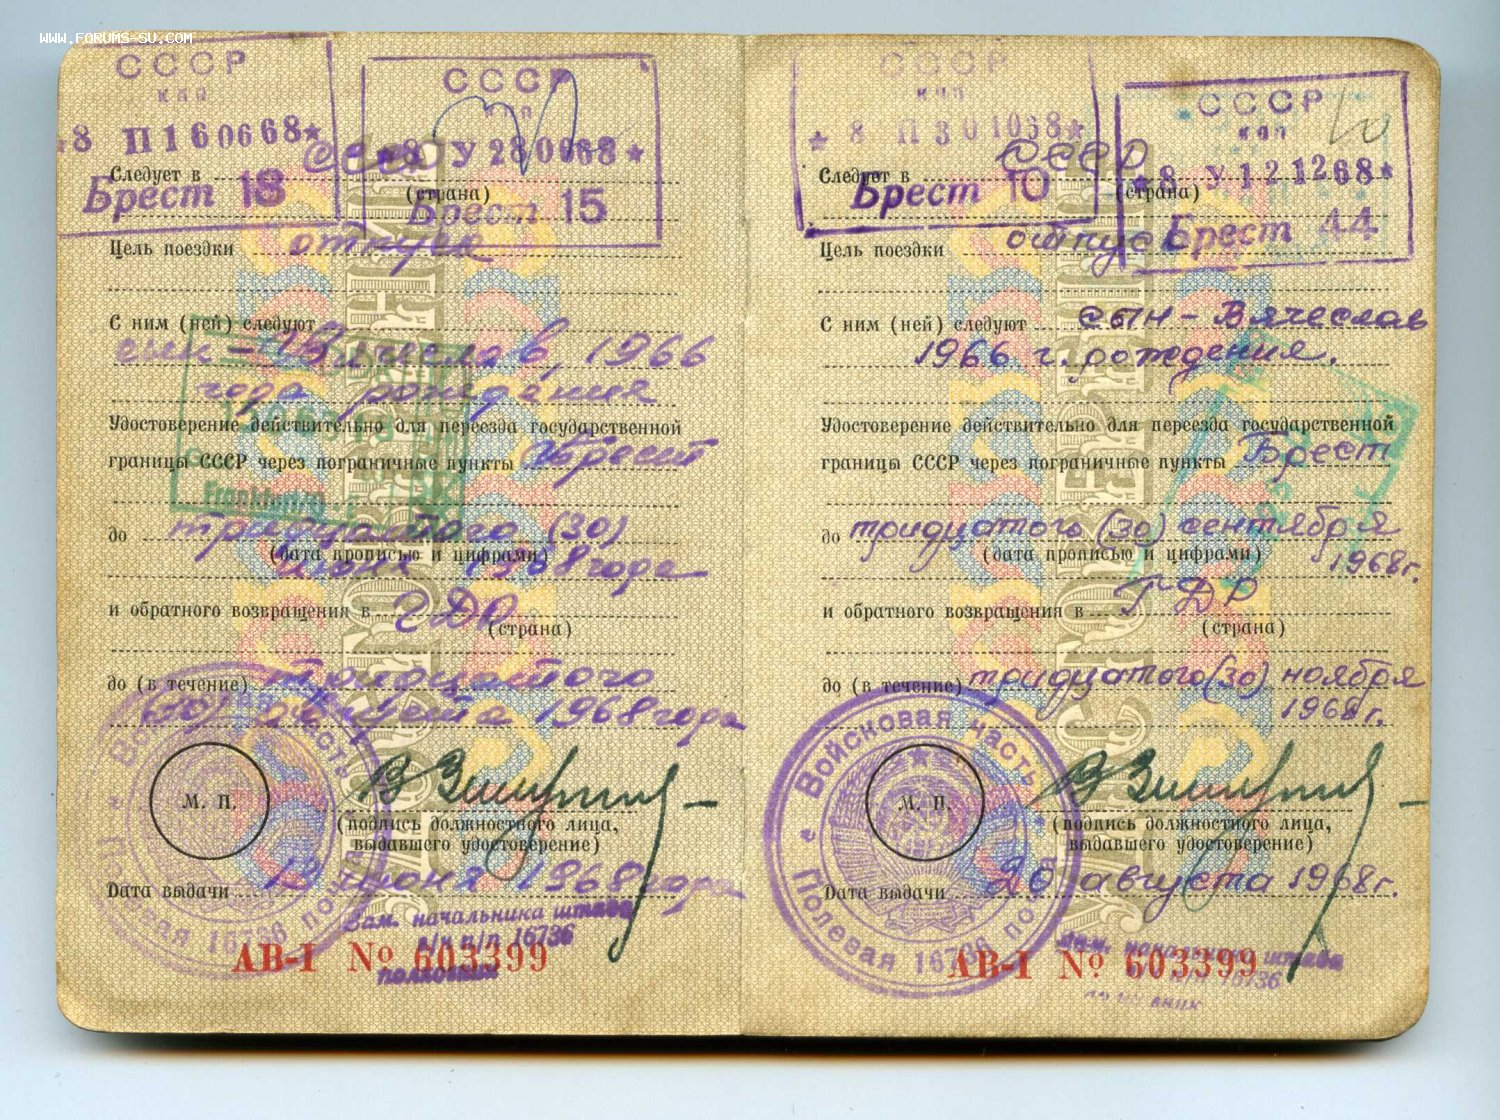 WWW.FORUMS-SU.COM
СССР
КПП
8 П 160668★
Брест 18
СССР
КПП
8 У 280968★
Брест 15
Следует в СССР
(страна)
Цель поездки отпуск
С ним (ней) следуют
сын - Вячеслав, 1966
года рождения
Удостоверение действительно для переезда государственной
границы СССР через пограничные пункты Брест
до тридцатого (30)
(дата прописью и цифрами)
июня 1968 года
и обратного возвращения в ГДР
(страна)
до (в течение) тридцатого
1968 года
Войсковая часть
Полевая почта 16736
М. П.
(подпись должностного лица,
выдавшего удостоверение)
Дата выдачи июня 1968 года
Зам. начальника штаба
в/ч п/п 16736
полковник
АВ-I № 603399
Frankfurt
СССР
КПП
★ 8 П 301068★
Брест 10
СССР
КПП
★8 У 121268★
Брест 44
Следует в СССР
(страна)
Цель поездки отпуск
С ним (ней) следуют сын - Вячеслав
1966 г. рождения.
Удостоверение действительно для переезда государственной
границы СССР через пограничные пункты Брест
до тридцатого (30) сентября
(дата прописью и цифрами)
1968г.
и обратного возвращения в ГДР
(страна)
до (в течение) тридцатого (30) ноября
1968г.
Войсковая часть
Полевая почта 16736
М. П.
(подпись должностного лица,
выдавшего удостоверение)
Дата выдачи 20 августа 1968г.
Зам. начальника штаба
в/ч п/п 16736
полковник
АВ-I № 603399